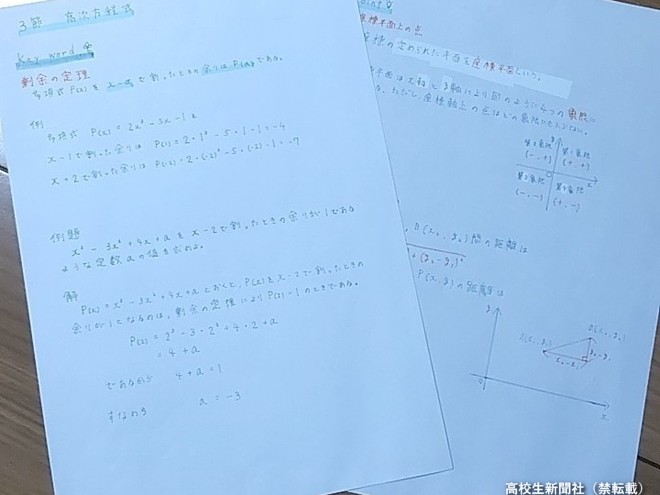 3節 高次方程式
key word
剰余の定理
多項式 P(x) を x-a で割ったときの余りは P(a) である。
例
多項式 P(x) = 2x³ - 5x - 1 を
x-1で割った余りは P(1) = 2・1³ - 5・1 - 1 = -4
x+2で割った余りは P(-2) = 2・(-2)³ - 5・(-2) - 1 = -7
例題
x³ - 3x² + 4x + a を x-2 で割ったときの余りが1である
ような定数aの値を求めよ。
解
P(x) = x³ - 3x² + 4x + a とおくと、P(x)を x-2 で割ったときの
余りが1となるのは、剰余の定理により P(2) = 1 のときである。
P(2) = 2³ - 3・2² + 4・2 + a
= 4 + a
であるから 4 + a = 1
すなわち a = -3
oint
座標平面上の点
座標の定められた平面を座標平面という。
平面は x軸と y軸により図のように4つの象限に
る。ただし、座標軸上の点はどの象限にも入らない。
第2象限 第1象限
(-, +) (+, +)
第3象限 第4象限
(-, -) (+, -)
y
x
O
B(x₂, y₂) 間の距離は
+ (y₂ - y₁)²
P(x, y) の距離は
y
B(x₂, y₂)
A(x₁, y₁)
y₂ - y₁
x₂ - x₁
O
x
高校生新聞社(禁転載)